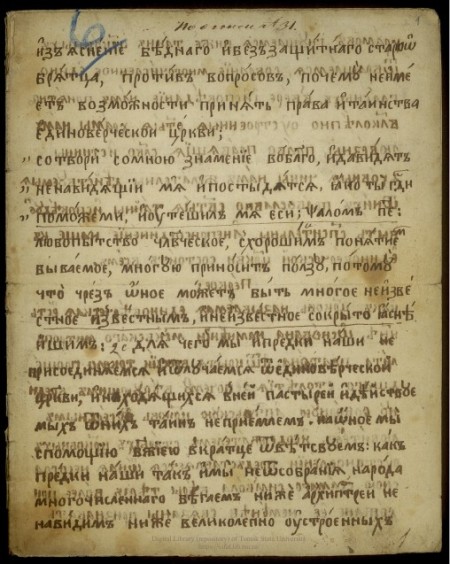 По описи № 31.
1
6
изъяснение бѣднаго и безъзащитнаго старо
брятца, противъ вопросовъ, почемꙋ неимѣ
етъ возможности принять права и таинства
единоверческой цркви;
„ сотвори сомною знамение воблаго, идавидятъ
„ ненавидящии мя ипостыдятся, яко ты гди
„ поможеми, иоутешилъ мя еси; ѱаломъ пе:
любопытство члвческое, схорошимъ понятие
вываемое, многою приноситъ ползꙋ, потомꙋ
что чрезъ ѿное можетъ быть многое неизве
стное известнымъ, инеизвестное сокрыто
ишимъ: 2е для чего мы ипредки наши не
присоединяемся иѿлучаемся ѿединовѣрческой
цркви, инаходящихся вней пастырей идѣйствое
мыхъ ѿнихъ таинъ неприемлемъ. наѿное мы
спомощию бжиею вкратце ѿвѣтсвꙋемъ: какъ
предки наши такъ имы неѿсобрания народа
многочисленнаго бѣгаемъ ниже архиптрей не
навидимъ ниже великолепно оустроенныхъ
Digital Library (repository) of Tomsk State University